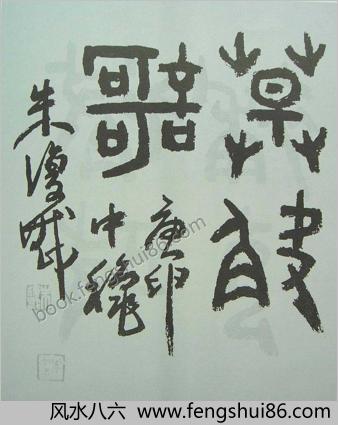 草訣
謌
庚申
中穐
朱復戡
book.fengshui86.com
风水八六 www.fengshui86.com